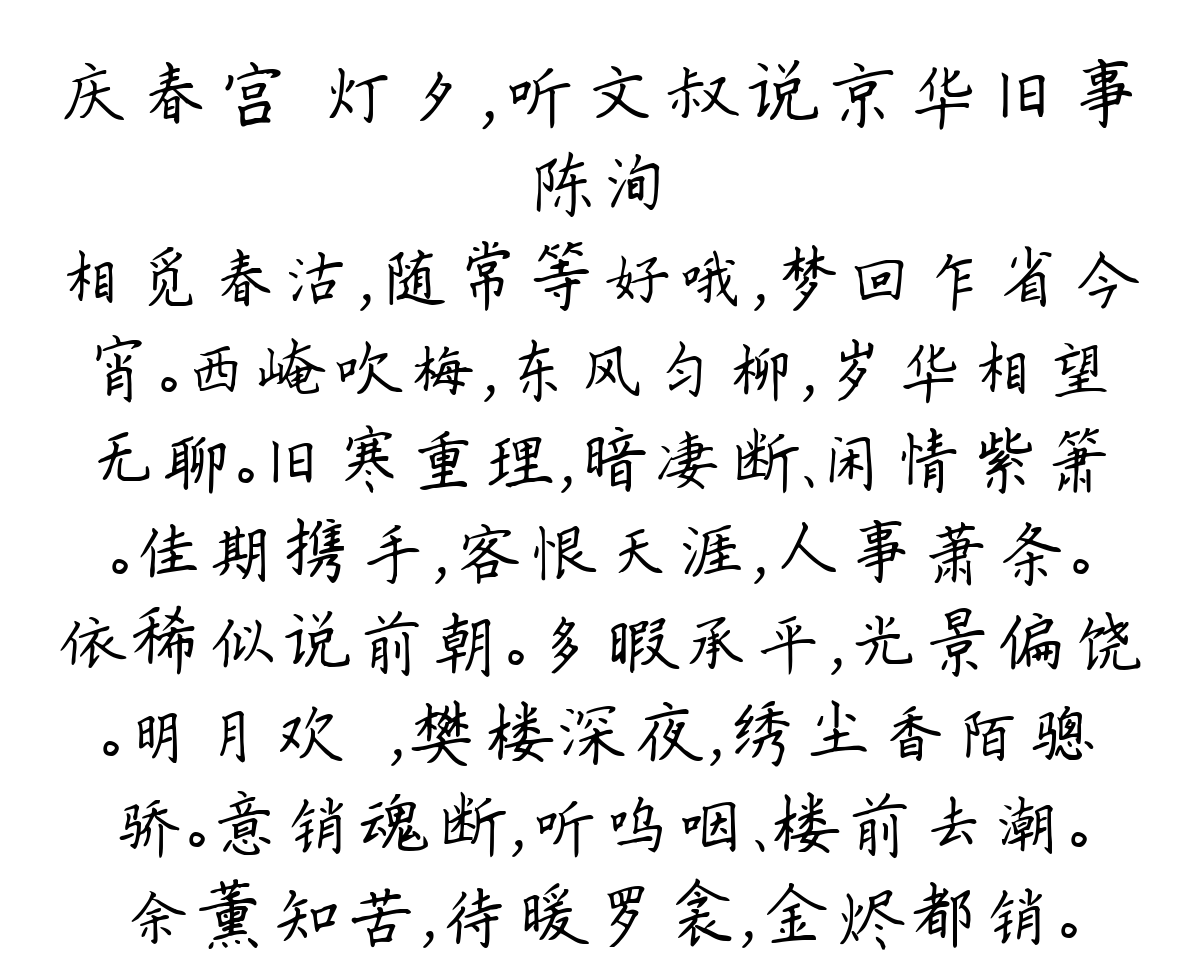 庆春宫 灯夕,听文叔说京华旧事
陈洵
相觅春沽,随常等好哦,梦回乍省今
宵。西崦吹梅,东风匀柳,岁华相望
无聊。旧寒重理,暗凄断、闲情紫箫
。佳期携手,客恨天涯,人事萧条。
依稀似说前朝。多暇承平,光景偏饶
。明月欢 ,樊楼深夜,绣尘香陌骢
骄。意销魂断,听呜咽、楼前去潮。
余薰知苦,待暖罗衾,金烬都销。